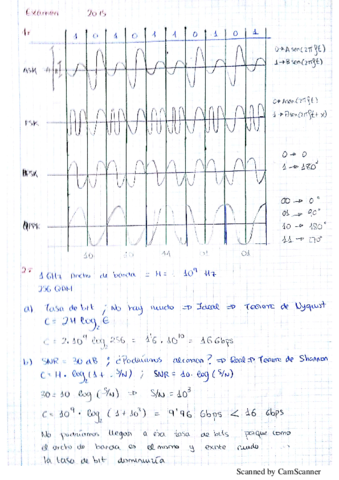 Examen 2015
1.
1 0 1 0 1 1 0 1 0 1
ASK
0→Asen(2πft)
1→Bsen(2πft)
FSK
0→Asen(2πft)
1→
BPSK
0 → 0
1 → 180°
QPSK
00 → 0°
01 → 90°
10 → 180°
11 → 270°
10 10 01
2.
1 GHz ancho de banda = H = 10⁹ Hz
256 QAM
a) Tasa de bit ; No hay ruido ⇒ Ideal ⇒ Teorema de Nyquist
C = 2H log₂ 
C = 2·10⁹ log₂ 256 = 1'6 · 10¹⁰ = 16 Gbps
b) SNR = 30 dB ; ¿Podríamos alcanzar? ⇒ Real ⇒ Teorema de Shannon
C = H · log₂(1 + S/N) ; SNR = 10· log (S/N)
30 = 10 log (S/N) ⇒ S/N = 10³
C = 10⁹ · log₂ (1 + 10³) = 9'96 Gbps < 16 Gbps
No podríamos llegar a esa tasa de bits porque como
el ancho de banda es el mismo y existe ruido
la tasa de bit disminuiría
Scanned by CamScanner